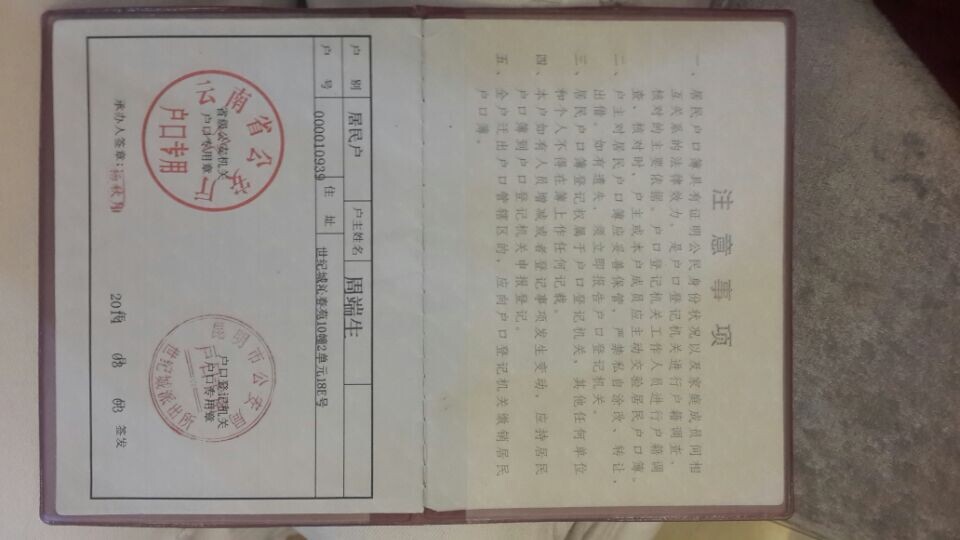 注意事项
一、居民户口簿具有证明公民身份状况以及家庭成员间相
互关系的法律效力，是户口登记机关进行户籍调查、
核对的主要依据。户口登记机关工作人员进行户籍调
查、核对时，户主或本户成员应主动交验居民户口簿。
二、户主对居民户口簿应妥善保管，严禁私自涂改、转让、
出借。如有遗失，须立即报告户口登记机关。
三、居民户口簿登记权属于户口登记机关，其他任何单位
和个人不得在簿上作任何记载。
四、本户如有人员增减或者登记事项发生变动，应持居民
户口簿到户口登记机关申报登记。
五、全户迁出户口管辖区的，应向户口登记机关缴销居民
户口簿。
户别 居民户 户主姓名 周端生
户号 000010939 住址 世纪城沁春苑10幢2单元18E号
云南省公安厅
省级公安机关
户口专用章
户口专用
昆明市公安局
户口登记机关
户口专用章
世纪城派出所
承办人签章：
签发